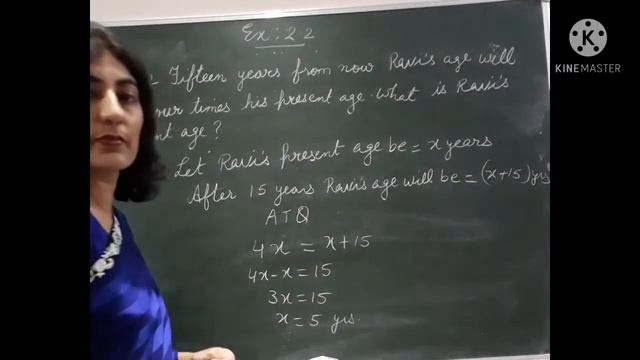 Ex: 2.2
Fifteen years from now Ravi's age will
our times his present age. what is Ravi's
nt age?
Let Ravi's present age be = x years
After 15 years Ravi's age will be = (x+15) yrs
ATQ
4x = x+15
4x-x = 15
3x = 15
x = 5 yrs.
K
KINEMASTER